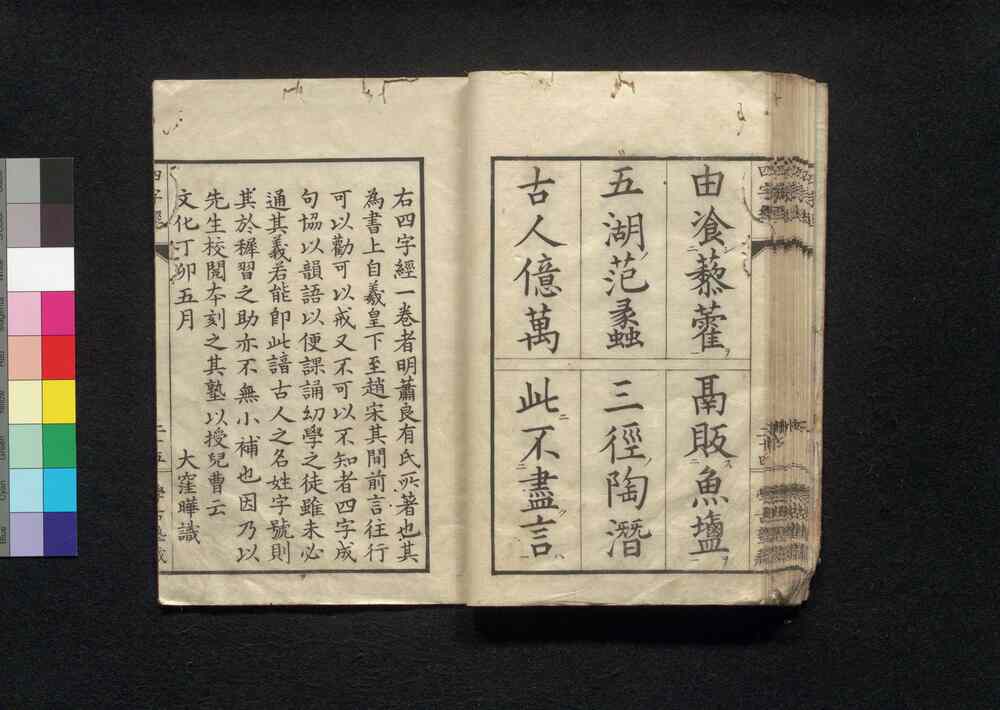 由飡藜藿
鬲販魚塩
五湖范蠡
三徑陶潛
古人億萬
此不盡言
右四字經一卷者明蕭良有氏所著也其
為書上自羲皇下至趙宋其間前言往行
可以勸可以戒又不可以不知者四字成
句協以韻語以便課誦幼學之徒雖未必
通其義若能即此諳古人之名姓字號則
其於穉習之助亦不無小補也因乃以
先生校閲本刻之其塾以授兒曹云
文化丁卯五月
大窪曄識
四字經